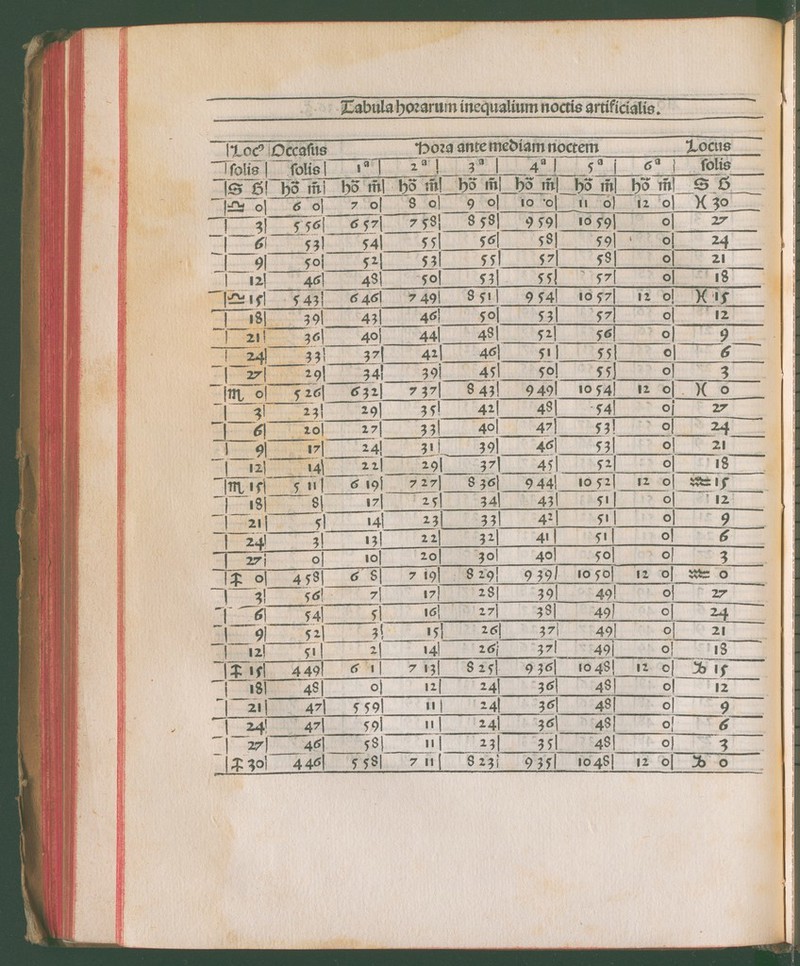 Tabula horarum inequalium noctis artificialis.
Locꝰ Occasus Hora ante mediam noctem Locus
solis solis 1ª 2ª 3ª 4ª 5ª 6ª solis
S G hō m̄ hō m̄ hō m̄ hō m̄ hō m̄ hō m̄ hō m̄ S G
♎ 0 6 0 7 0 8 0 9 0 10 0 11 0 12 0 ♓ 30
3 5 56 6 57 7 58 8 58 9 59 10 59 0 27
6 53 54 55 56 58 59 0 24
9 50 52 53 55 57 58 0 21
12 46 48 50 53 55 57 0 18
♎ 15 5 43 6 46 7 49 8 51 9 54 10 57 12 0 ♓ 15
18 39 43 46 50 53 57 0 12
21 36 40 44 48 52 56 0 9
24 33 37 42 46 51 55 0 6
27 29 34 39 45 50 55 0 3
♏ 0 5 26 6 32 7 37 8 43 9 49 10 54 12 0 ♓ 0
3 23 29 35 42 48 54 0 27
6 20 27 33 40 47 53 0 24
9 17 24 31 39 46 53 0 21
12 14 22 29 37 45 52 0 18
♏ 15 5 11 6 19 7 27 8 36 9 44 10 52 12 0 ♒ 15
18 8 17 25 34 43 51 0 12
21 5 14 23 33 42 51 0 9
24 3 13 22 32 41 51 0 6
27 0 10 20 30 40 50 0 3
♐ 0 4 58 6 8 7 19 8 29 9 39 10 50 12 0 ♒ 0
3 56 7 17 28 39 49 0 27
6 54 5 16 27 38 49 0 24
9 52 3 15 26 37 49 0 21
12 51 2 14 26 37 49 0 18
♐ 15 4 49 6 1 7 13 8 25 9 36 10 48 12 0 ♑ 15
18 48 0 12 24 36 48 0 12
21 47 5 59 11 24 36 48 0 9
24 47 59 11 24 36 48 0 6
27 46 58 11 23 35 48 0 3
♐ 30 4 46 5 58 7 11 8 23 9 35 10 48 12 0 ♑ 0